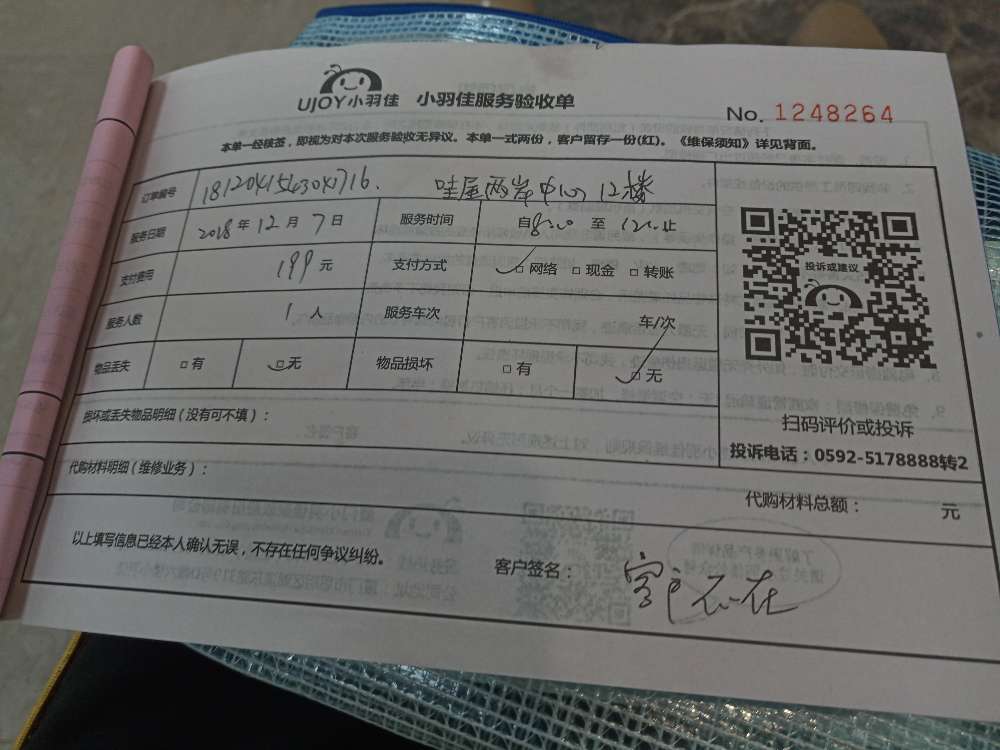 UJOY小羽佳 小羽佳服务验收单
No. 1248264
本单一经核签，即视为对本次服务验收无异议。本单一式两份，客户留存一份(红)。《维保须知》详见背面。
订单编号 两岸中心 12楼
服务日期 2018年12月7日 服务时间 自8:00至12:00止
支付费用 199元 支付方式 网络 现金 转账
服务人数 1人 服务车次 车/次
物品丢失 有 无 物品损坏 有 无
损坏或丢失物品明细（没有可不填）：
代购材料明细（维修业务）：
代购材料总额： 元
以上填写信息已经本人确认无误，不存在任何争议纠纷。
客户签名： 客户不在
投诉或建议
扫码评价或投诉
投诉电话：0592-5178888转2